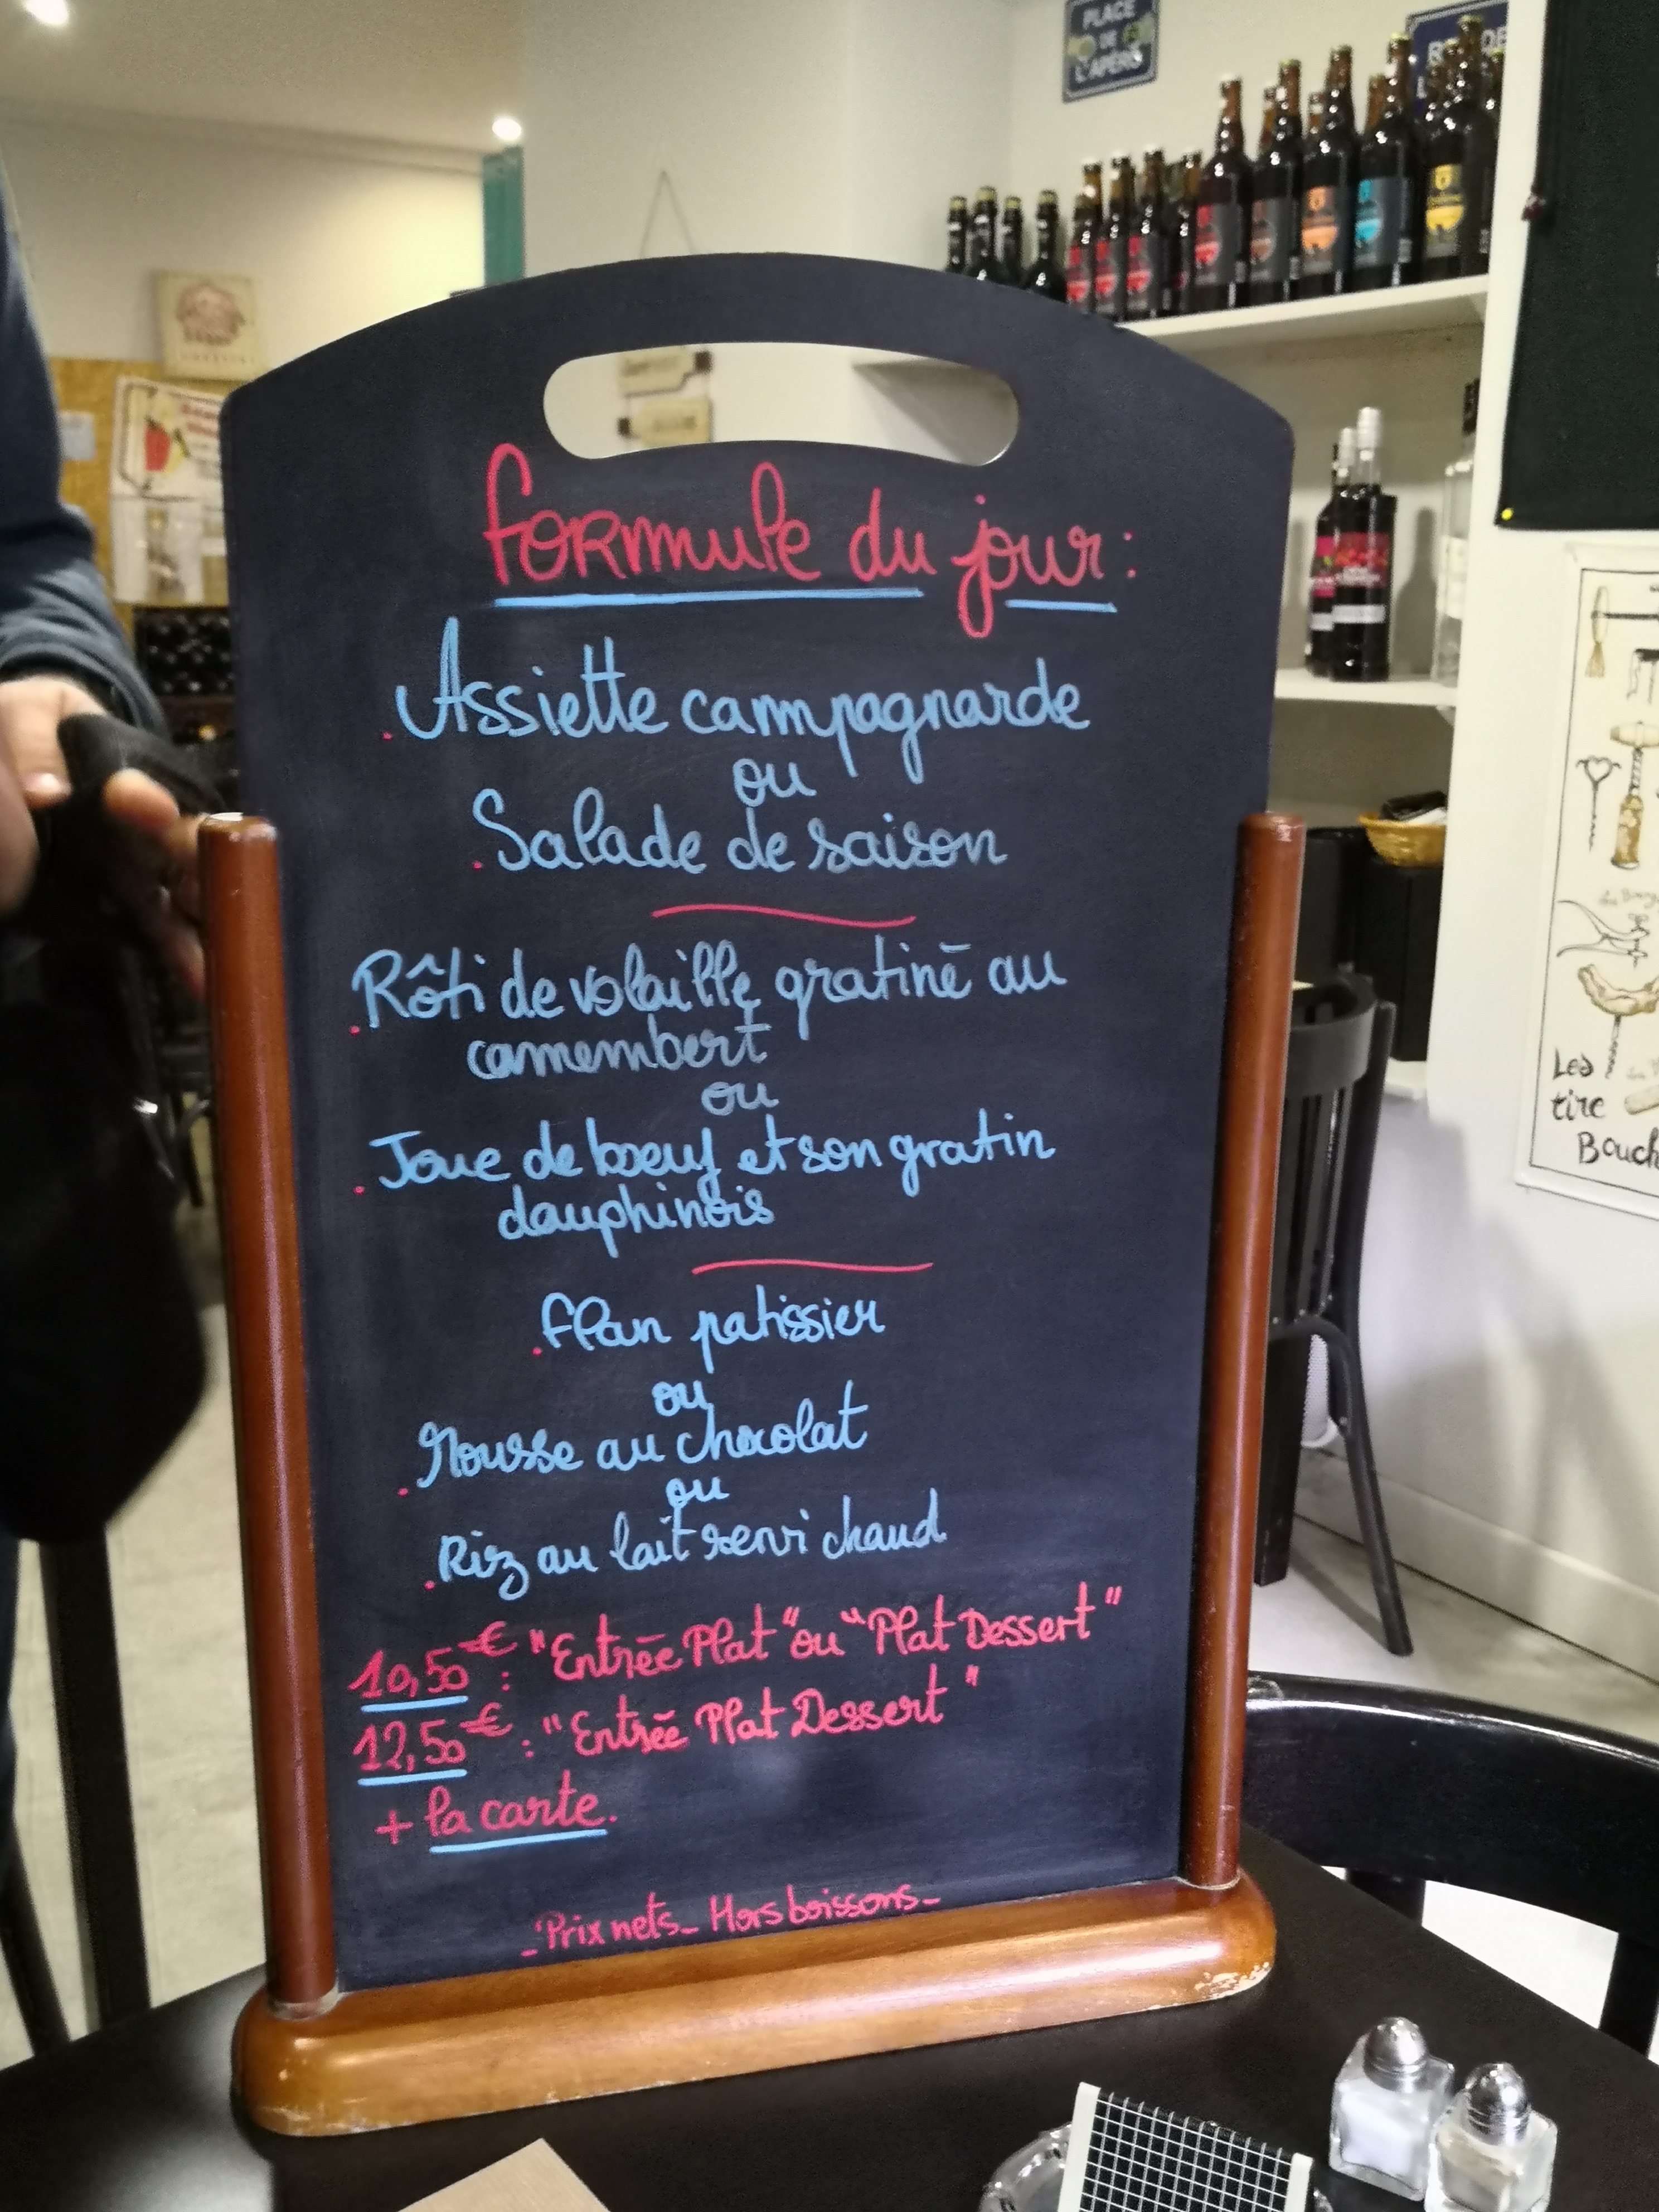 PLACE
DE
L'APÉRO
formule du jour :
. Assiette campagnarde
ou
. Salade de saison
. Rôti de volaille gratiné au
camembert
ou
. Joue de boeuf et son gratin
dauphinois
. flan patissier
ou
. Mousse au chocolat
ou
. Riz au lait servi chaud
10,50€ : "Entrée Plat" ou "Plat Dessert"
12,50€ : "Entrée Plat Dessert"
+ la carte.
- Prix nets - Hors boissons -
Les
tire
Bouch